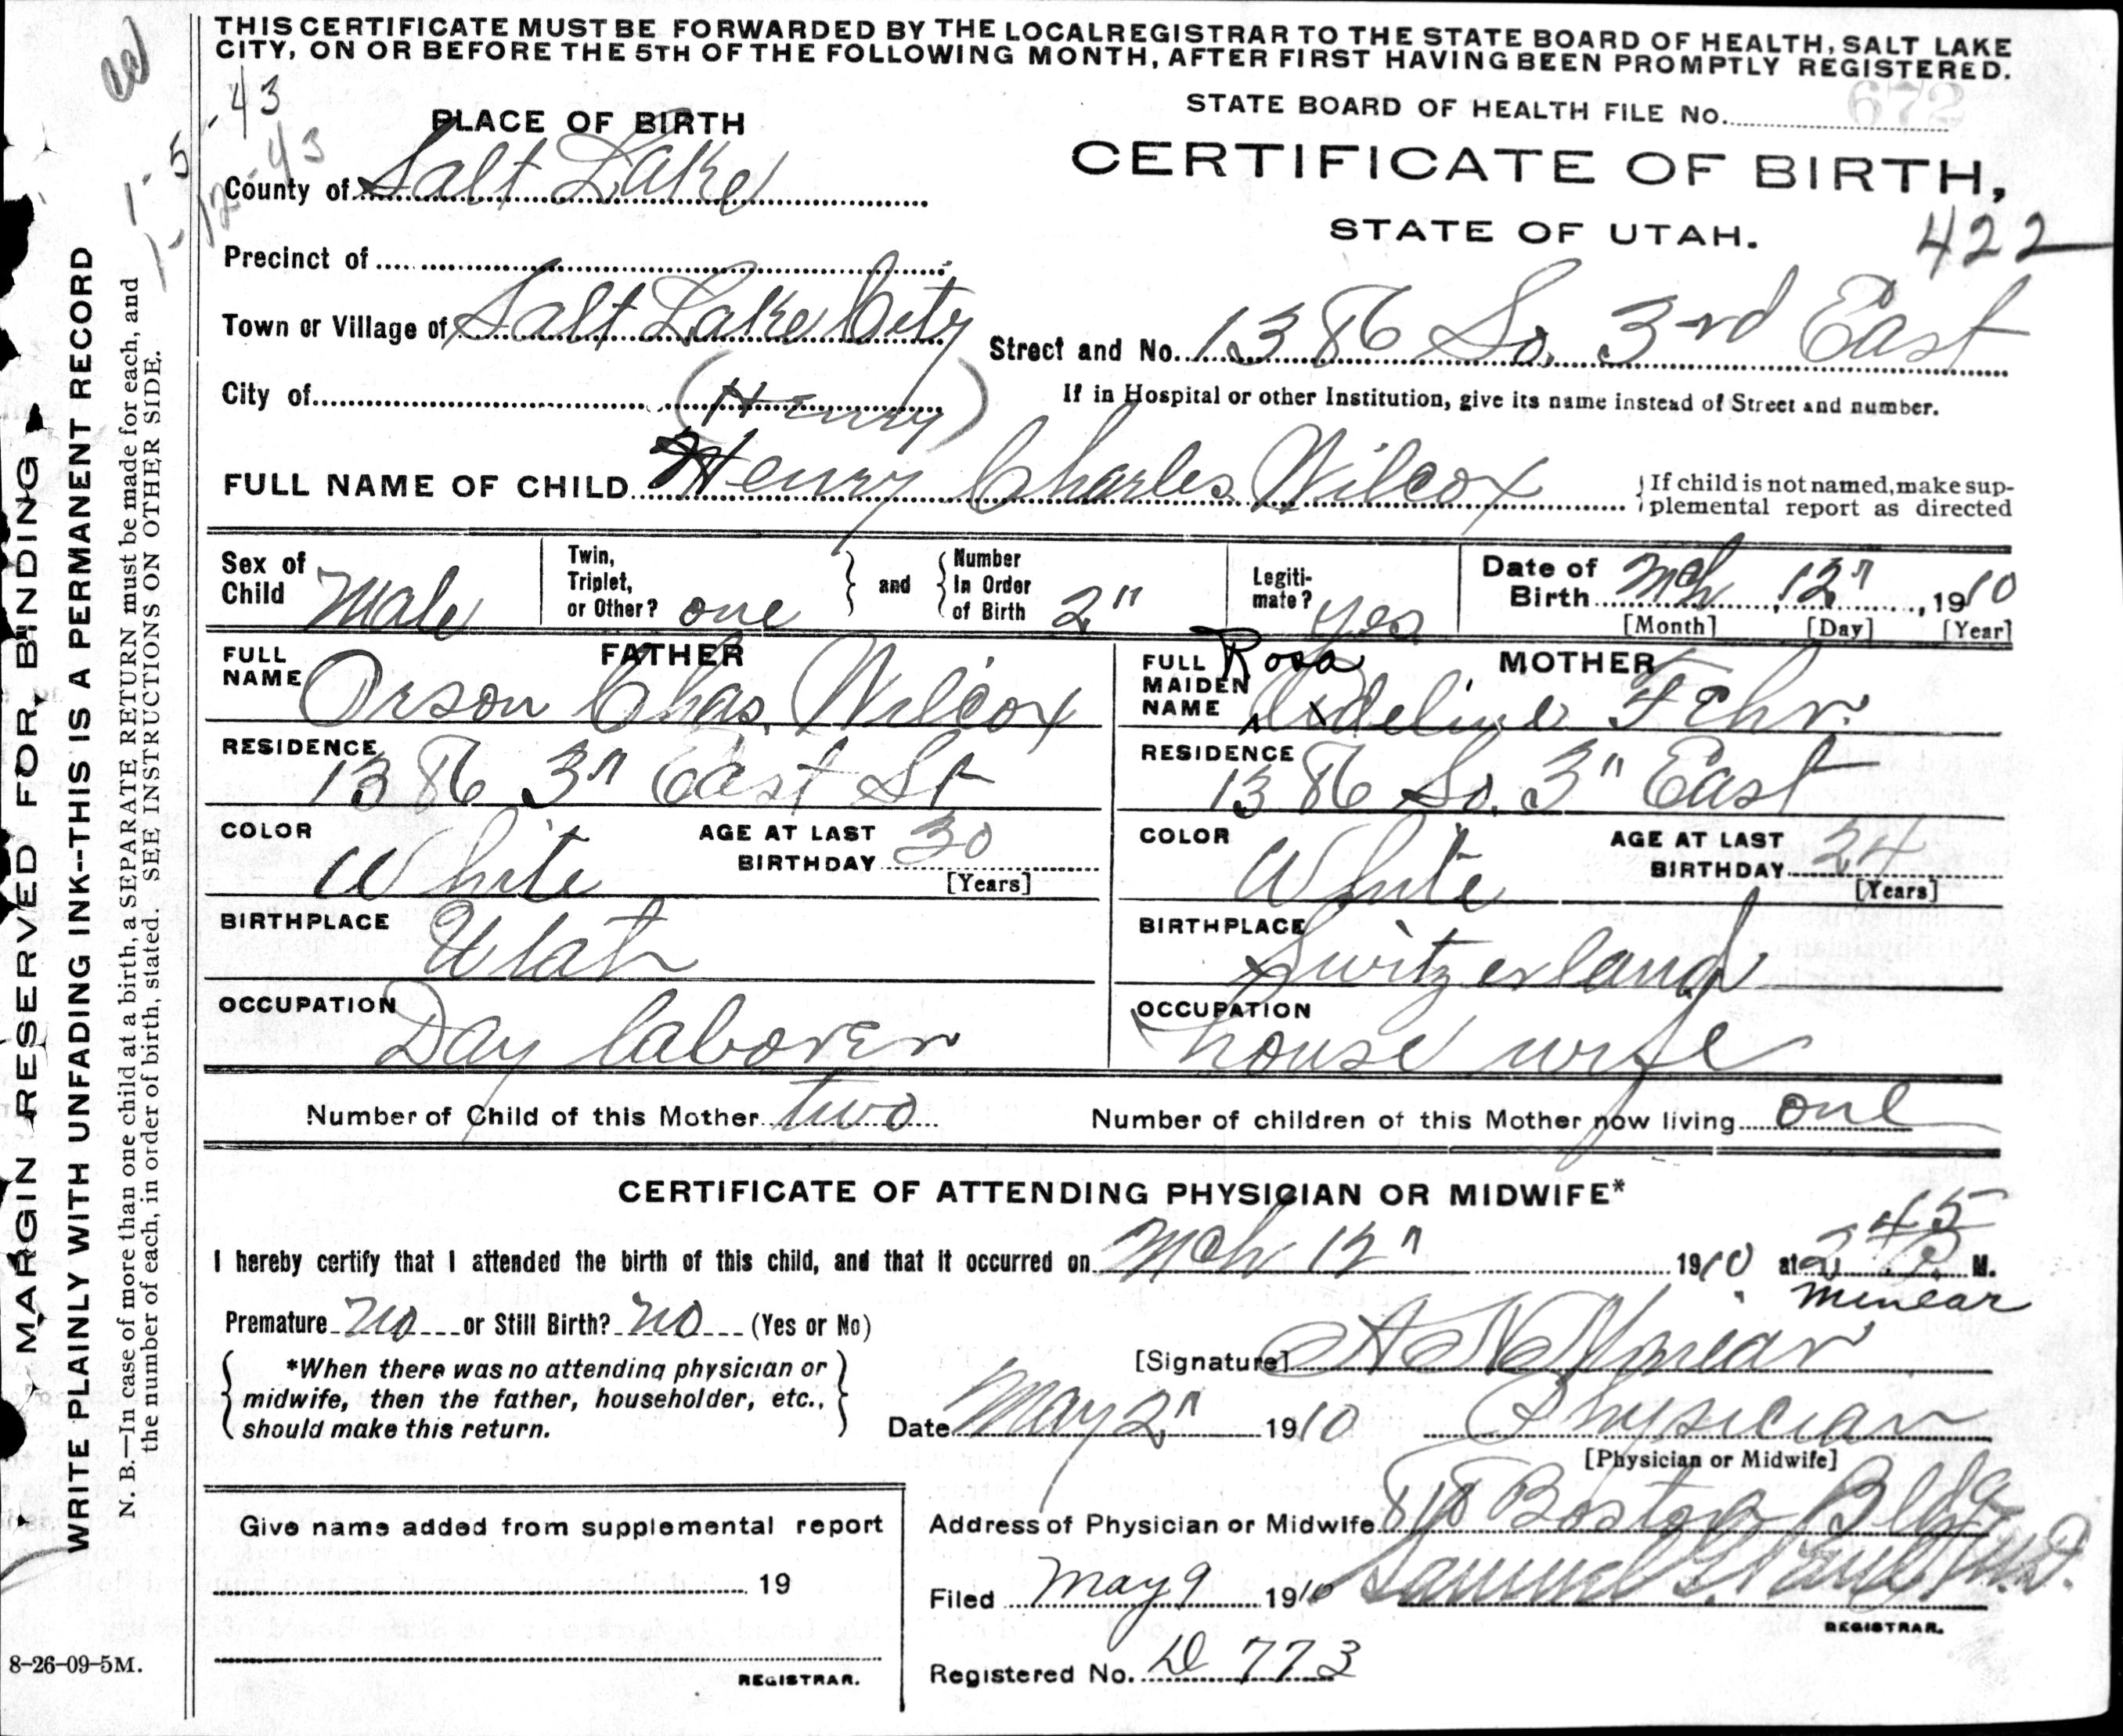 THIS CERTIFICATE MUST BE FORWARDED BY THE LOCAL REGISTRAR TO THE STATE BOARD OF HEALTH, SALT LAKE
CITY, ON OR BEFORE THE 5TH OF THE FOLLOWING MONTH, AFTER FIRST HAVING BEEN PROMPTLY REGISTERED.
1-5-43
1-12-43
STATE BOARD OF HEALTH FILE No. 672
PLACE OF BIRTH
CERTIFICATE OF BIRTH,
STATE OF UTAH.
422
County of Salt Lake
Precinct of
Town or Village of Salt Lake City
Street and No. 1386 So. 3rd East
City of
(Henry)
If in Hospital or other Institution, give its name instead of Street and number.
FULL NAME OF CHILD Henry Charles Wilcox
If child is not named, make sup-
plemental report as directed
Sex of Child Male
Twin, Triplet, or Other? one
and
Number In Order of Birth 2"
Legiti-mate? yes
Date of Birth Mch 12", 1910
[Month] [Day] [Year]
FATHER
FULL NAME Orson Chas. Wilcox
RESIDENCE 1386 3" East St
COLOR White
AGE AT LAST BIRTHDAY 30
[Years]
BIRTHPLACE Utah
OCCUPATION Day laborer
MOTHER
Rosa
FULL MAIDEN NAME Adeline Fehr.
RESIDENCE 1386 So. 3" East
COLOR White
AGE AT LAST BIRTHDAY 24
[Years]
BIRTHPLACE Switzerland
OCCUPATION house wife
Number of Child of this Mother two
Number of children of this Mother now living one
CERTIFICATE OF ATTENDING PHYSICIAN OR MIDWIFE*
I hereby certify that I attended the birth of this child, and that it occurred on Mch 12" 1910 at 2 45 P. M.
Premature no or Still Birth? no (Yes or No)
Minear
[Signature] Minear
*When there was no attending physician or
midwife, then the father, householder, etc.,
should make this return.
Date May 2" 1910
Physician
[Physician or Midwife]
Give name added from supplemental report
19
REGISTRAR.
Address of Physician or Midwife Boston Bldg
Filed May 9 1910 Samuel G. Paul M.D.
REGISTRAR.
Registered No. D 773
MARGIN RESERVED FOR BINDING
WRITE PLAINLY WITH UNFADING INK--THIS IS A PERMANENT RECORD
N. B.—In case of more than one child at a birth, a SEPARATE RETURN must be made for each, and
the number of each, in order of birth, stated. SEE INSTRUCTIONS ON OTHER SIDE.
8-26-09-5M.